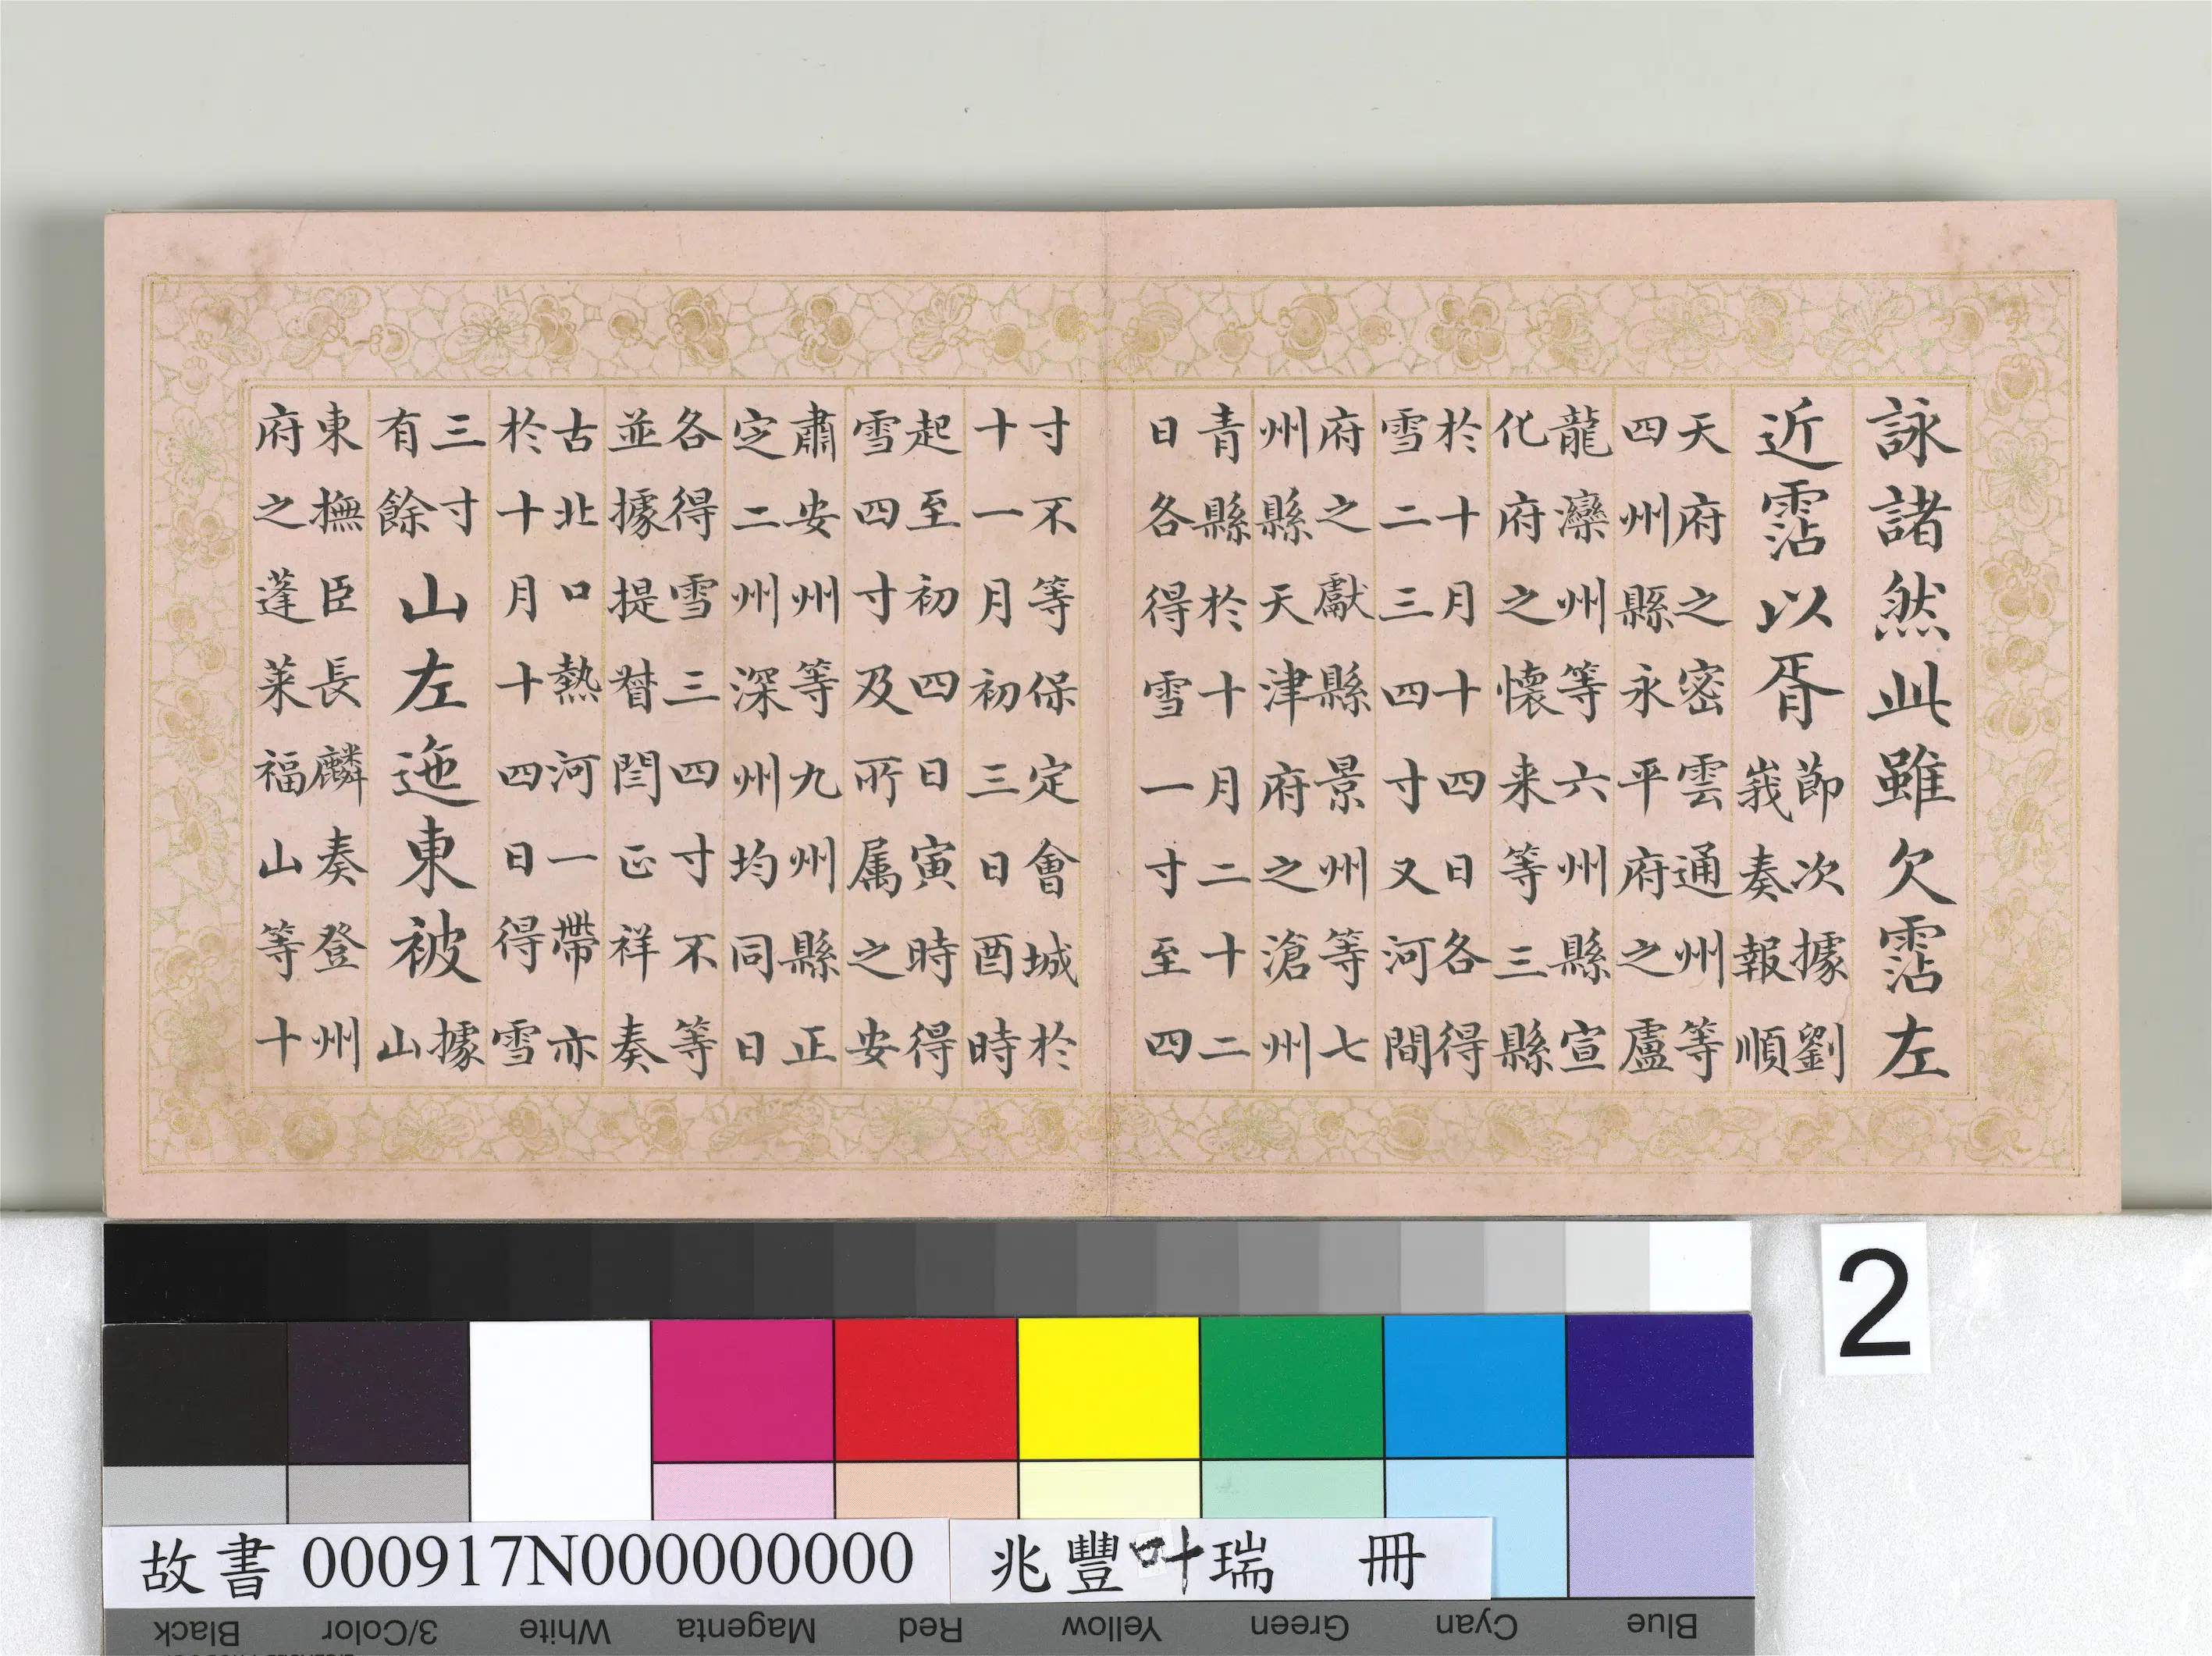 詠諸然此雖欠霑左
近霑以胥
節次據劉
峩奏報順
天府之密雲通州等
四州縣永平府之盧
龍灤州等六州縣宣
化府之懷来等三縣
於十月十四日各得
雪二三四寸又河間
府之獻縣景州等七
州縣天津府之滄州
青縣於十月二十二
日各得雪一寸至四
寸不等保定會城於
十一月初三日酉時
起至初四日寅時得
雪四寸及所属之安
肅安州等九州縣正
定二州深州均同日
各得雪三四寸不等
並據提督閆正祥奏
古北口熱河一帶亦
於十月十四日得雪
三寸
有餘
山左迤東被
據
山
東撫臣長麟奏登州
府之蓬萊福山等十
2
故書 000917N000000000 兆豐叶瑞 冊
Black 3/Color White Magenta Red Yellow Green Cyan Blue